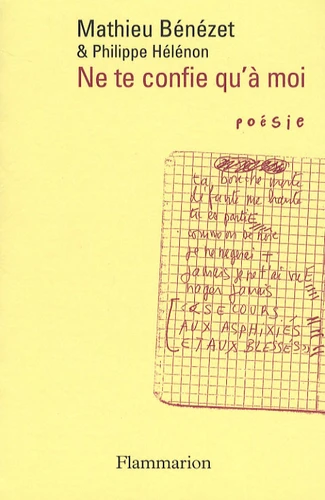 Mathieu Bénézet
& Philippe Hélénon
Ne te confie qu'à moi
poésie
ta bouche morte
défunte me hante
tu es partiE
comme on se noie
je ne nagerai +
jamais je ne t'ai vuE
nager jamais
SECOURS
AUX ASPHIXIÉS
ET AUX BLESSÉS
Flammarion